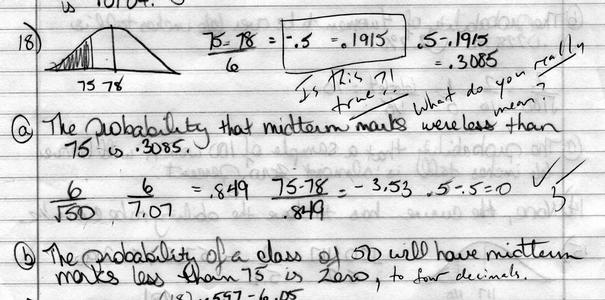 is 10/01.
18) 75-78 / 6 = -.5 = .1915 .5-.1915
= .3085
75 78
Is this true?! What do you really mean?
(a) The probability that midterm marks were less than
75 is .3085.
6/√50 6/7.07 = .849 75-78/.849 = -3.53 .5-.5=0 ✓ 5
(b) The probability of a class of 50 will have midterm
marks less than 75 is zero, to four decimals.